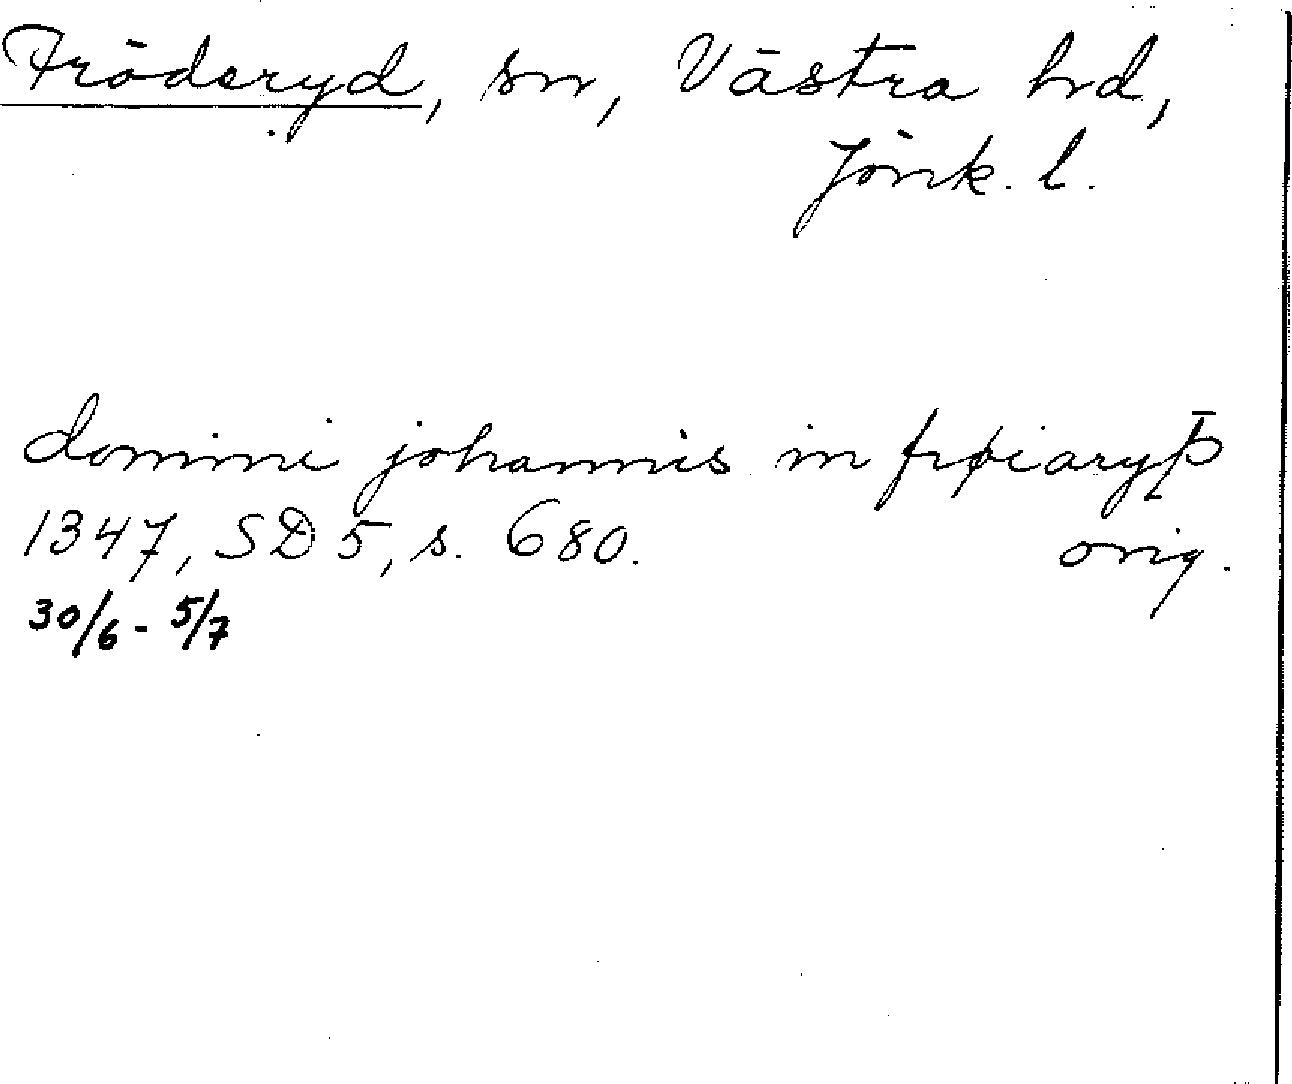 Fröderyd, sn, Västra hd,
Jönk. l.
domini johannis in frøiaryþ
1347, SD 5, s. 680. orig.
30/6 - 5/7